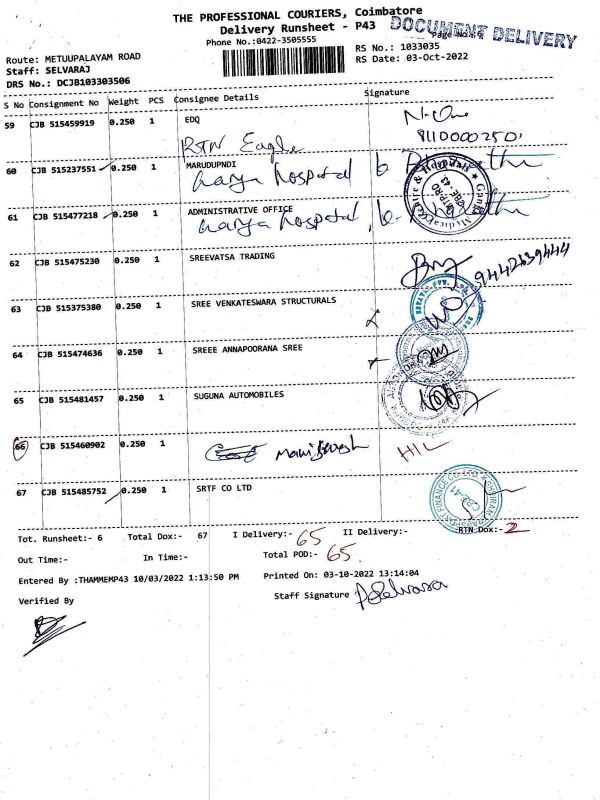 THE PROFESSIONAL COURIERS, Coimbatore
Delivery Runsheet - P43
DOCUMENT DELIVERY
Phone No.:0422-3505555
Page No.:6
Route: METUUPALAYAM ROAD
RS No.: 1033035
Staff: SELVARAJ
RS Date: 03-Oct-2022
DRS No.: DCJB103303506
S No Consignment No Weight PCS Consignee Details Signature
59 CJB 515459919 0.250 1 EDQ
RTN Eagle
60 CJB 515237551 0.250 1 MARUDUPNDI
hospital
61 CJB 515477218 0.250 1 ADMINISTRATIVE OFFICE
hospital
62 CJB 515475230 0.250 1 SREEVATSA TRADING
9442639444
63 CJB 515375380 0.250 1 SREE VENKATESWARA STRUCTURALS
64 CJB 515474636 0.250 1 SREEE ANNAPOORANA SREE
65 CJB 515481457 0.250 1 SUGUNA AUTOMOBILES
66 CJB 515460902 0.250 1 HIL
67 CJB 515485752 0.250 1 SRTF CO LTD
Tot. Runsheet:- 6 Total Dox:- 67 I Delivery:- 65 II Delivery:- RTN Dox:- 2
Out Time:- In Time:- Total POD:- 65
Entered By :THAMMEMP43 10/03/2022 1:13:50 PM Printed On: 03-10-2022 13:14:04
Verified By Staff Signature